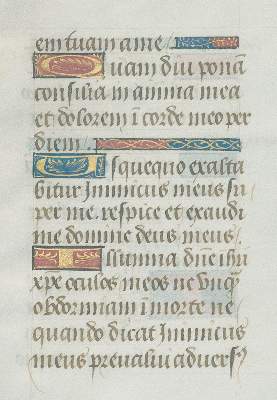 em tuam a me
Quam diu ponā
consilia in anima mea
et dolorem ī corde meo per
diem
Usquequo exalta
bitur Inimicus meus su
per me. respice et exaudi
me domine deus meus
Illumina dn̄e ihū
xp̄e oculos meos ne vnqꝫ
obdormiam ī morte ne
quando dicat Inimicus
meus preualui aduersꝰ